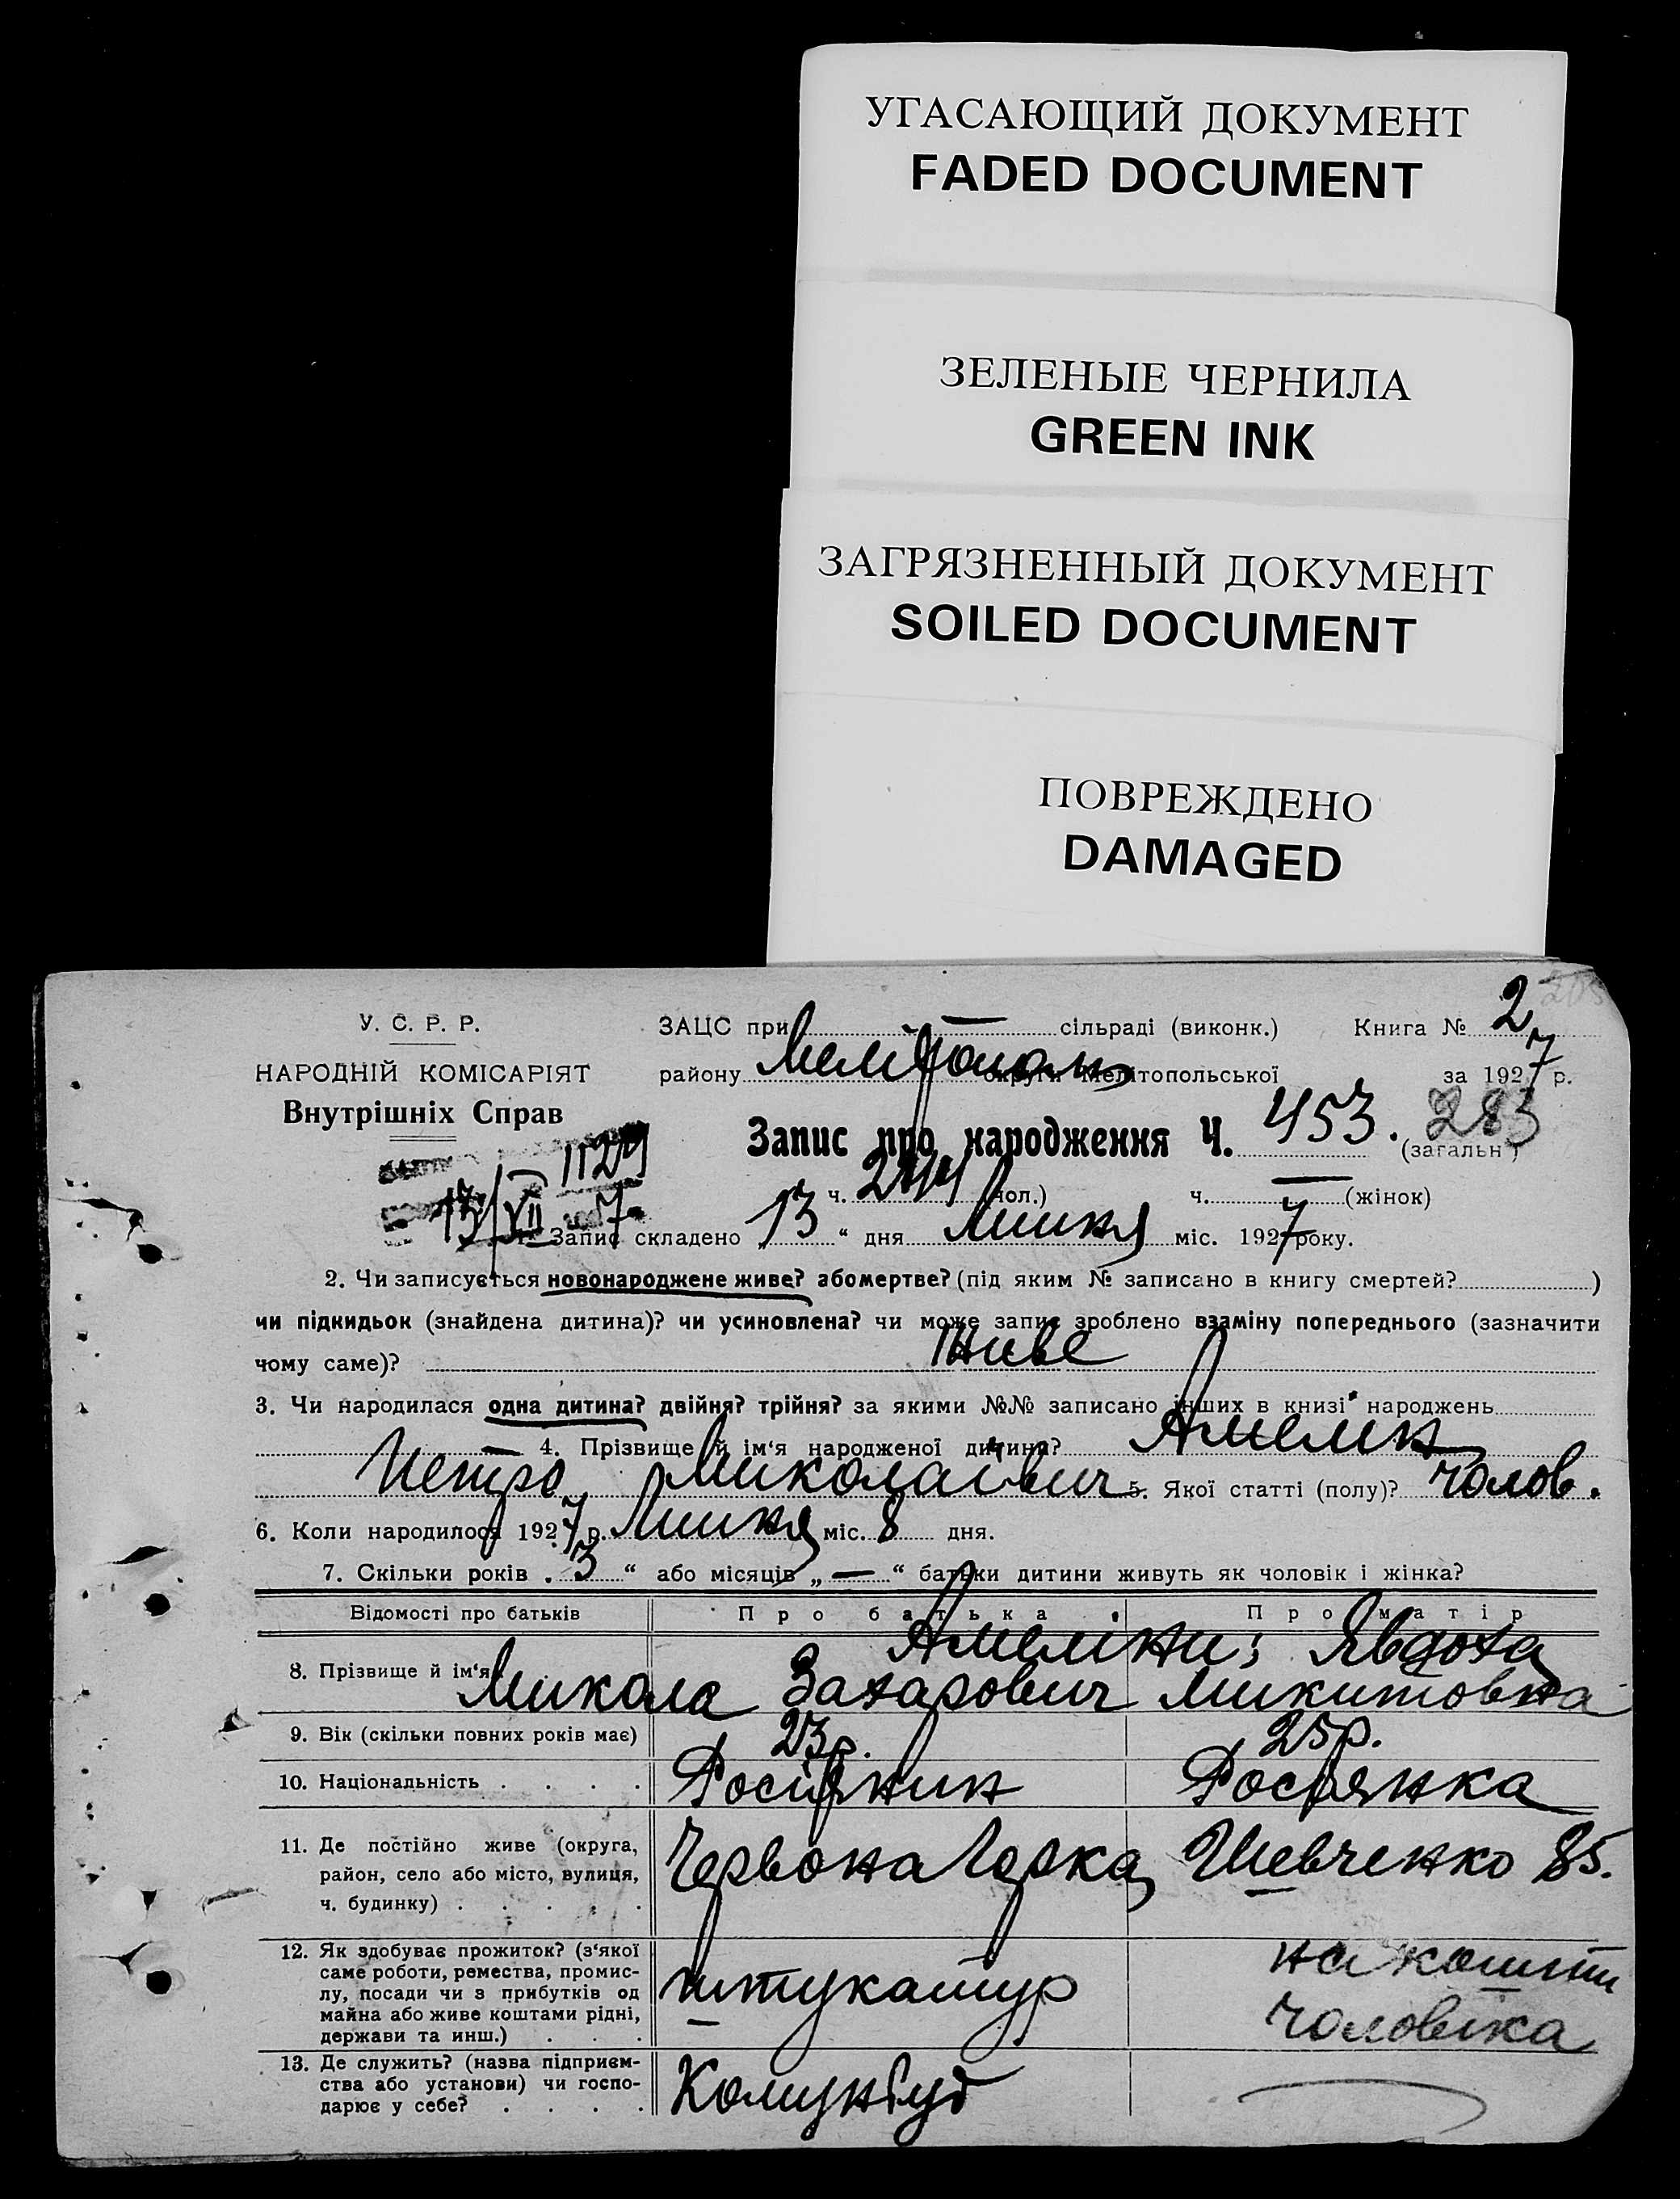 УГАСАЮЩИЙ ДОКУМЕНТ
FADED DOCUMENT
ЗЕЛЕНЫЕ ЧЕРНИЛА
GREEN INK
ЗАГРЯЗНЕННЫЙ ДОКУМЕНТ
SOILED DOCUMENT
ПОВРЕЖДЕНО
DAMAGED
У. С. Р. Р.
НАРОДНІЙ КОМІСАРІЯТ
Внутрішніх Справ
ЗАЦС при — сільраді (виконк.) Книга № 2
району Мелітополь округи Мелітопольської за 1927 р.
Запис про народження Ч. 453. 283 (загальн)
1129
13/VII 7
ч. 244 (чол.) ч. — (жінок)
1. Запис складено „13“ дня Липня міс. 1927 року.
2. Чи записується новонароджене живе? або мертве? (під яким № записано в книгу смертей? )
чи підкидьок (знайдена дитина)? чи усиновлена? чи може запис зроблено взаміну попереднього (зазначити
чому саме)? Живе
3. Чи народилася одна дитина? двійня? трійня? за якими №№ записано інших в книзі народжень
— 4. Прізвище й ім'я народженої дитини? Амелин
Петро Миколаївич 5. Якої статті (полу)? чолов.
6. Коли народилося 1927 р. Липня міс. 8 дня.
7. Скільки років „3“ або місяців „—“ батьки дитини живуть як чоловік і жінка?
Відомості про батьків Про батька Про матір
8. Прізвище й ім'я Амелини; Явдоха
Микола Захарович Микитовна
9. Вік (скільки повних років має) 23р. 25р.
10. Національність . . . . Росіянин Росіянка
11. Де постійно живе (округа,
район, село або місто, вулиця,
ч. будинку) . . . . .
Червона Горка Шевченко 85.
12. Як здобуває прожиток? (з'якої
саме роботи, ремества, промис-
лу, посади чи з прибутків од
майна або живе коштами рідні,
держави та инш.) . . .
штукатур
на кошти
чоловіка
13. Де служить? (назва підприєм-
ства або установи) чи госпо-
дарює у себе? . . . .
Комунбуд